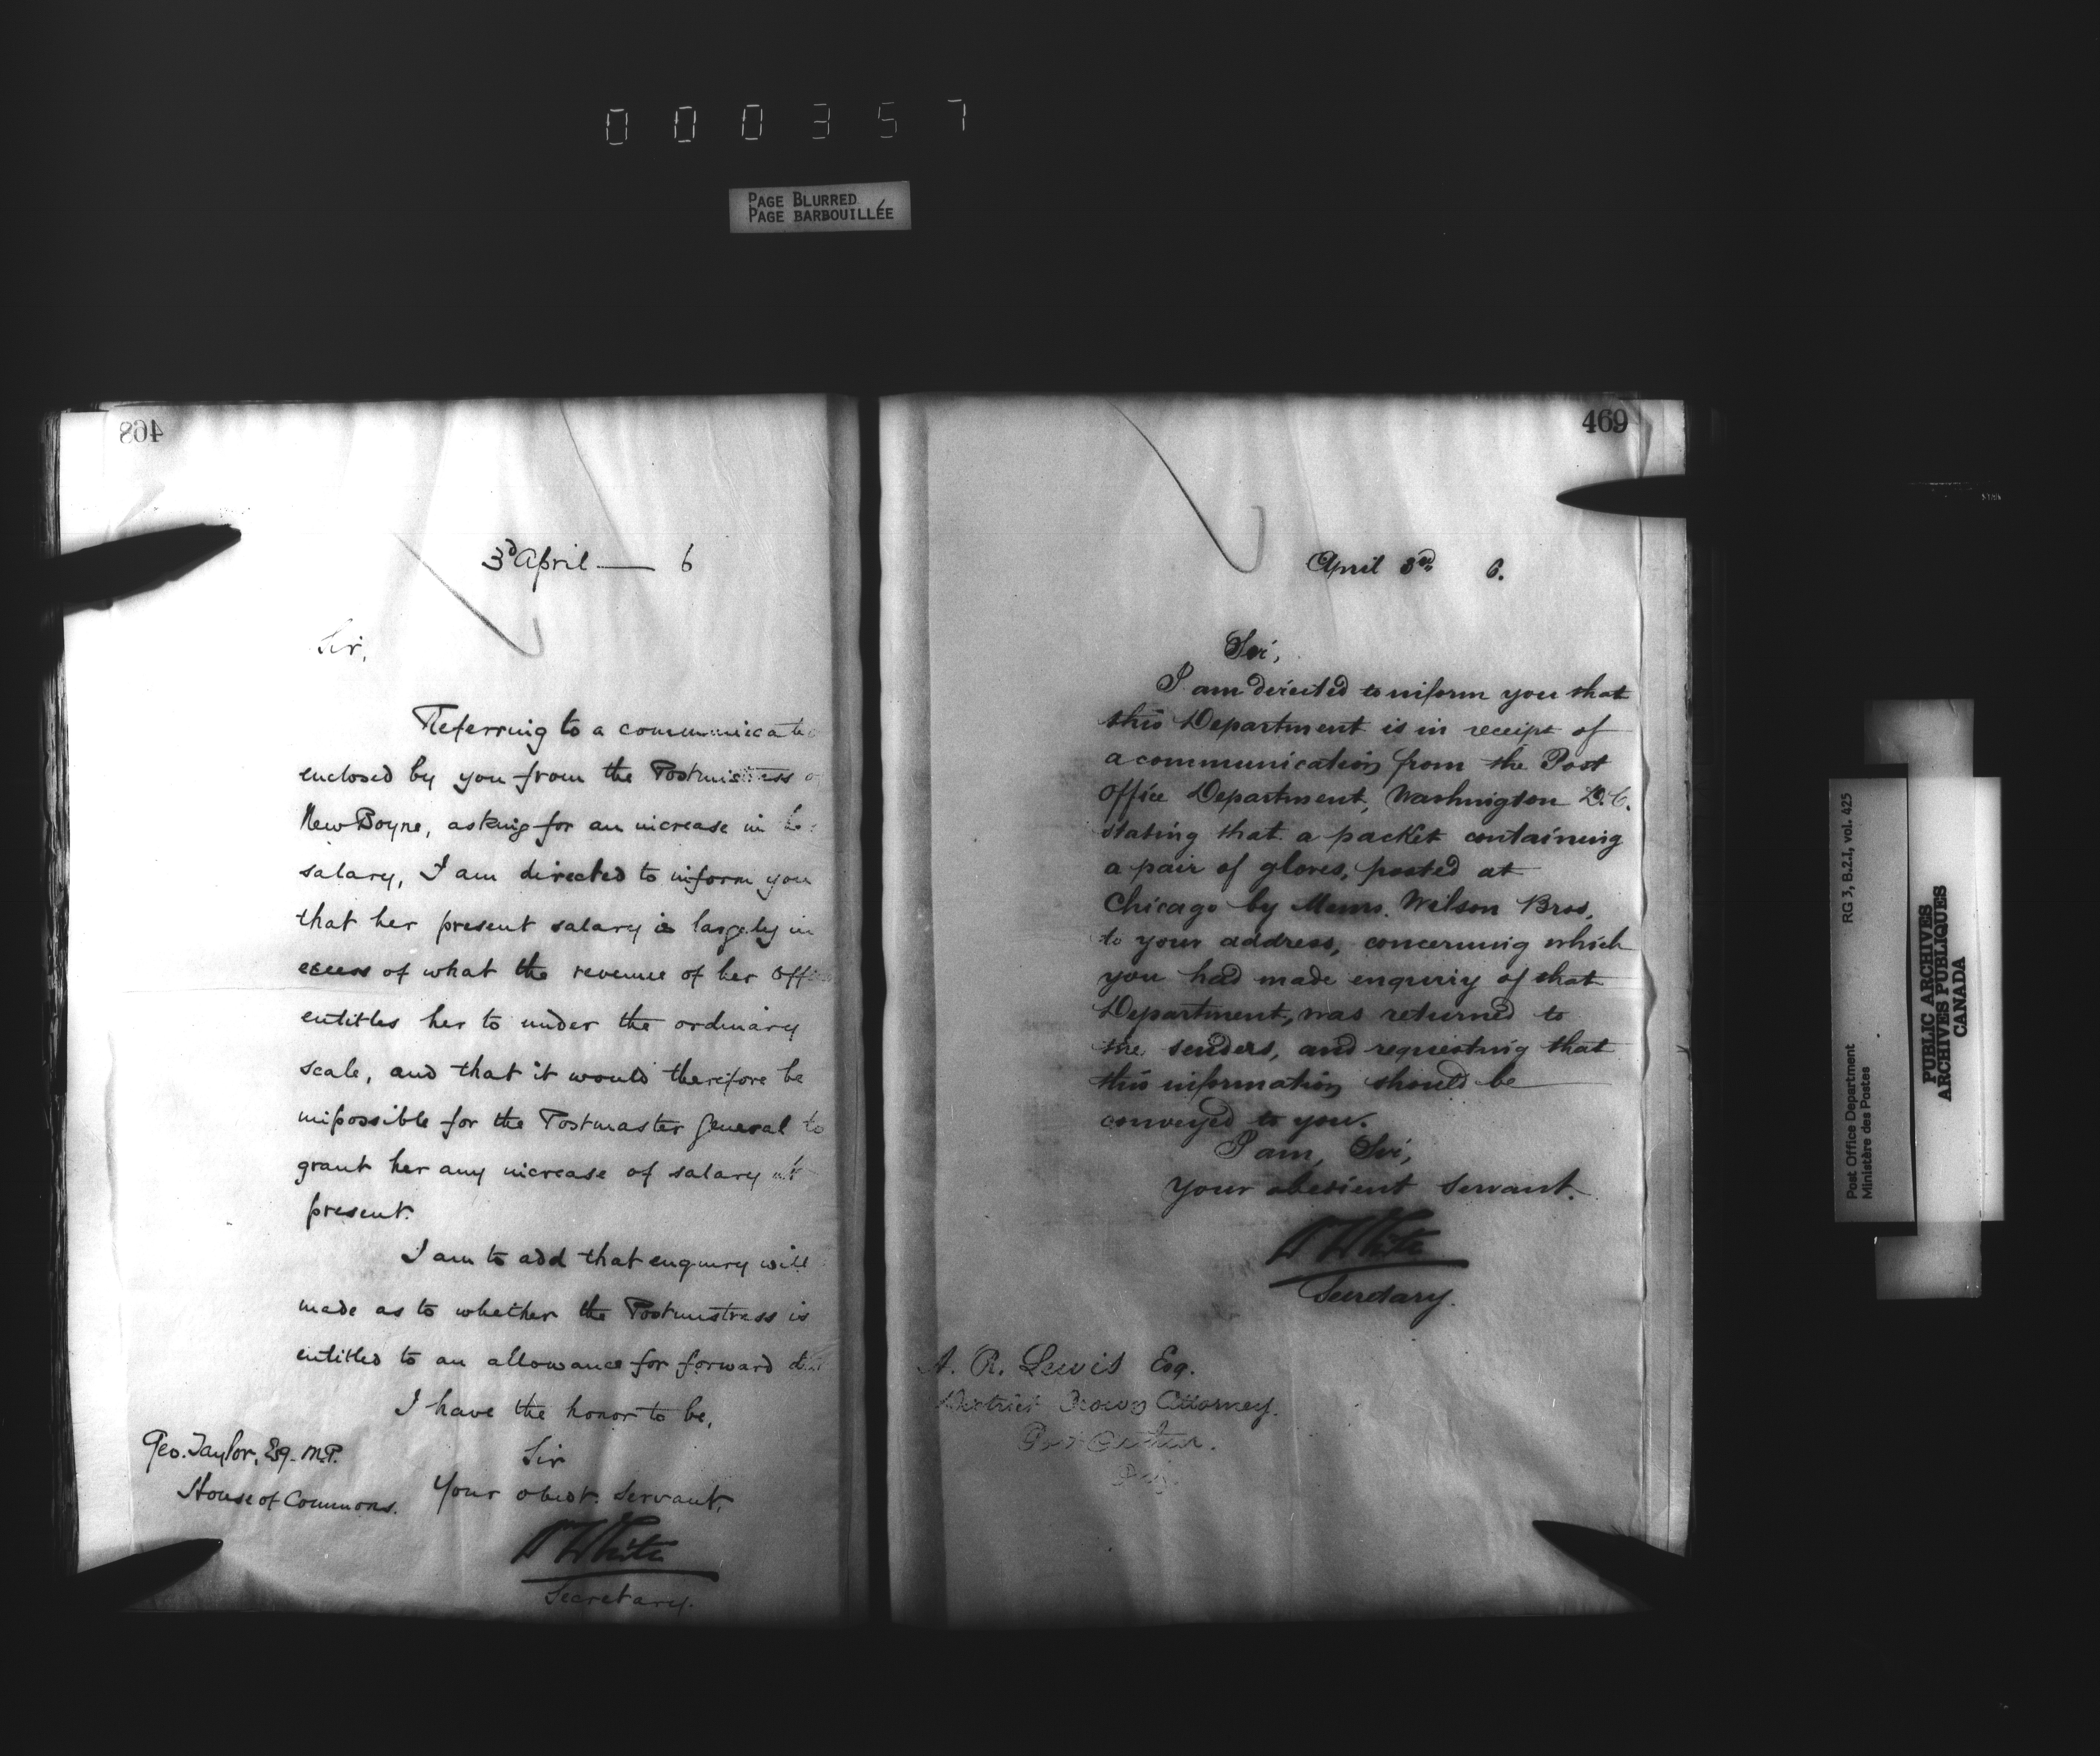 000357
PAGE BLURRED
PAGE BARBOUILLÉE
468
3d April — 6
Sir,
Referring to a communicatio
enclosed by you from the Postmistress o
New Boyne, asking for an increase in he
salary, I am directed to inform you
that her present salary is largely in
excess of what the revenue of her Offi
entitles her to under the ordinary
scale, and that it would therefore be
impossible for the Postmaster General to
grant her any increase of salary at
present.
I am to add that enquiry will
made as to whether the Postmistress is
entitled to an allowance for forward
I have the honor to be,
Sir
Your obedt. Servant,
Geo. Taylor, Esq. M.P.
House of Commons.
W White
Secretary.
469
April 3rd. 6.
Sir,
I am directed to inform you that
this Department is in receipt of
a communication from the Post
Office Department, Washington D.C.
stating that a packet containing
a pair of gloves, posted at
Chicago by Messrs. Wilson Bros.
to your address, concerning which
you had made enquiry of that
Department, was returned to
the senders, and requesting that
this information should be
conveyed to you.
I am, Sir,
Your obedient Servant.
W White
Secretary.
A. R. Lewis Esq.
District Crown Attorney.
Post Office Department
Ministère des Postes
RG 3, B.2.I, vol. 425
PUBLIC ARCHIVES
ARCHIVES PUBLIQUES
CANADA